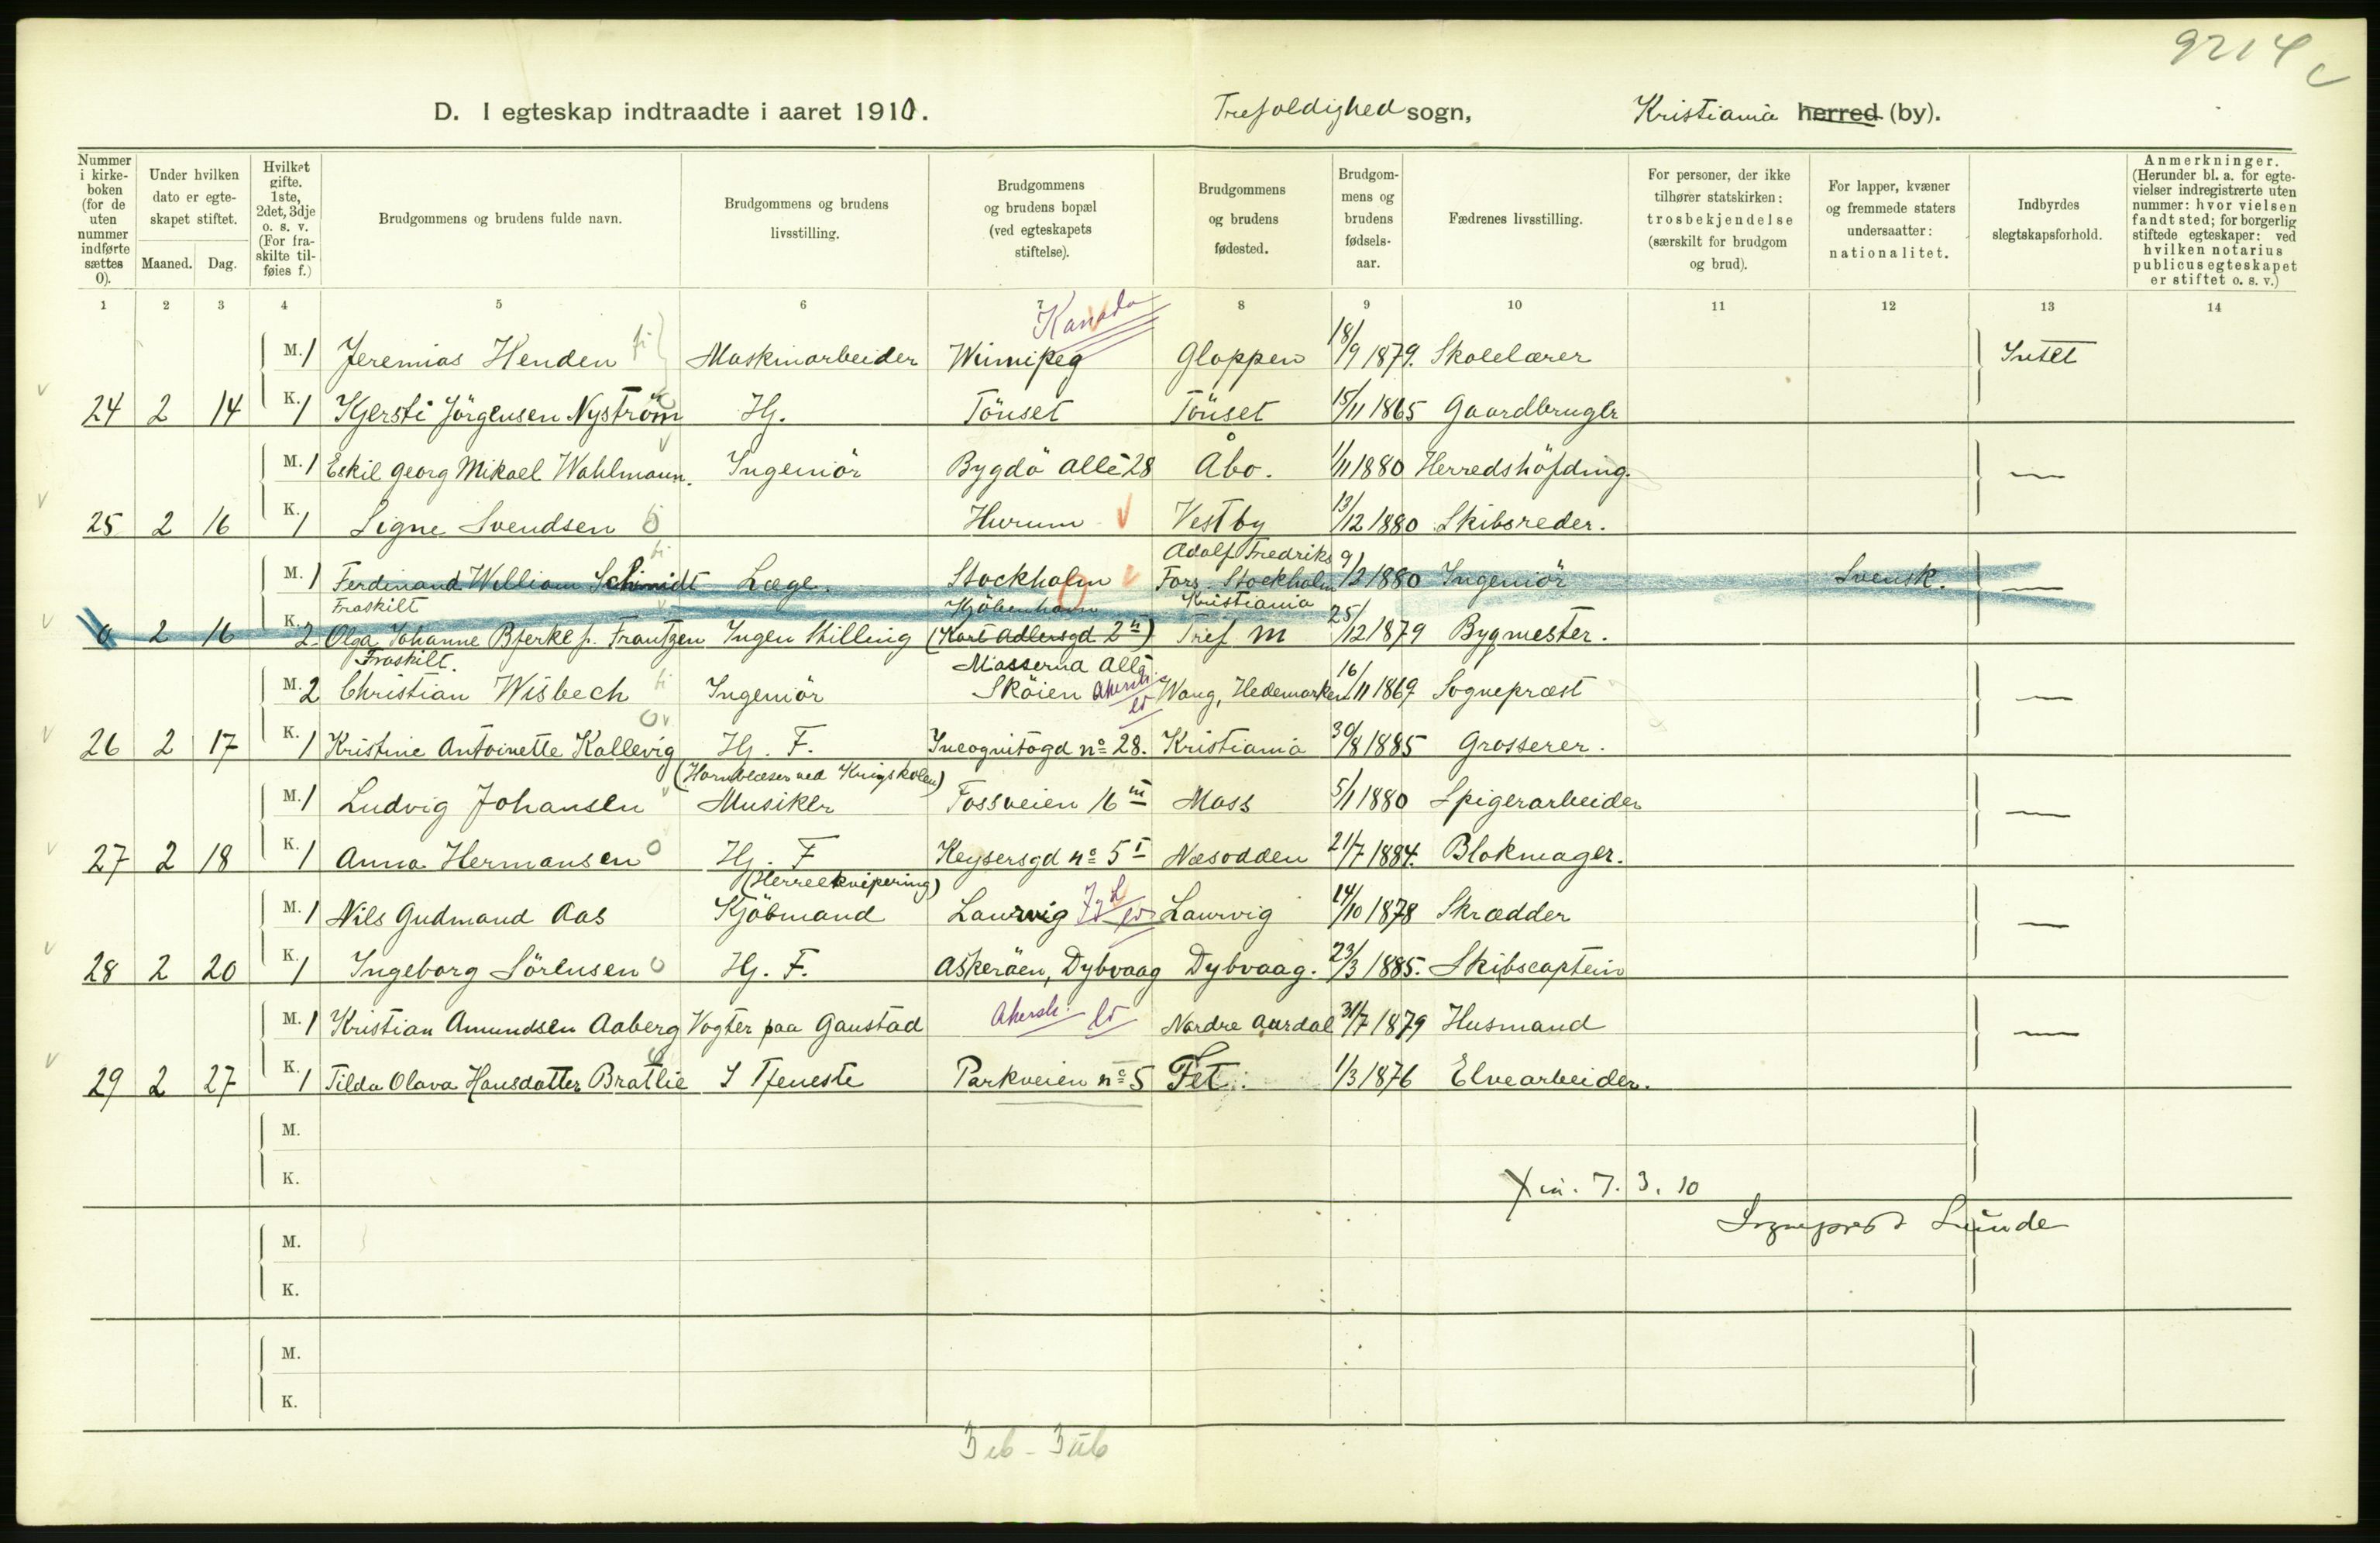 9214
c
D. I egteskap indtraadte i aaret 1910. Trefoldighed sogn, Kristiania herred (by).
Nummer i kirke-boken (for de uten nummer indførte sættes 0). Under hvilken dato er egte-skapet stiftet. Maaned. Dag. Hvilket gifte. 1ste, 2det, 3dje o. s. v. (For fra-skilte til-føies f.) Brudgommens og brudens fulde navn. Brudgommens og brudens livsstilling. Brudgommens og brudens bopæl (ved egteskapets stiftelse). Brudgommens og brudens fødested. Brudgom-mens og brudens fødsels-aar. Fædrenes livsstilling. For personer, der ikke tilhører statskirken: trosbekjendelse (særskilt for brudgom og brud). For lapper, kvæner og fremmede staters undersaatter: nationalitet. Indbyrdes slegtskapsforhold. Anmerkninger. (Herunder bl. a. for egte-vielser indregistrerte uten nummer: hvor vielsen fandt sted; for borgerlig stiftede egteskaper: ved hvilken notarius publicus egteskapet er stiftet o. s. v.)
1 2 3 4 5 6 7 8 9 10 11 12 13 14
Kanada
M. 1 Jeremias Henden Maskinarbeider Winnipeg Gloppen 18/9 1879. Skolelærer Intet
24 2 14 K. 1 Kjersti Jörgensen Nyström Hj. Tönset Tönset 15/11 1865 Gaardbruger
M. 1 Eskil Georg Mikael Wahlmann. Ingeniör Bygdö Allé 28 Åbo. 1/11 1880 Herredshöfding. —
25 2 16 K. 1 Signe Svendsen Hurum Vestby 13/12 1880 Skibsreder.
Adolf Fredriks
M. 1 Ferdinand William Schmidt Læge. Stockholm Fors. Stockholm 9/2 1880 Ingeniör Svensk. —
Fraskilt Kjöbenhavn Kristiania
0 2 16 K. 2 Olga Johanne Bjerke f. Frantzen Ingen Stilling (Kort Adlersgd 2 II) Tref. M 25/12 1879 Bygmester.
Fraskilt. Masserud Allé
M. 2 Christian Wisbech Ingeniör Sköien Akersh. Wang, Hedemarken 16/11 1869 Sogneprœst —
26 2 17 K. 1 Kristine Antoinette Kallevig Hj. F. Incognitogd no 28. Kristiania 30/8 1885 Grosserer.
(Hornblæser ved Krigsskolen)
M. 1 Ludvig Johansen Musiker Fossveien 16 III Moss 5/1 1880 Spigerarbeider —
27 2 18 K. 1 Anna Hermansen Hj. F Keysersgd no 5 I Næsodden 21/7 1884. Blokmager.
(Herreekvipering)
M. 1 Nils Gudmand Aas Kjöbmand Laurvig Laurvig 14/10 1878 Skrædder —
28 2 20 K. 1 Ingeborg Sörensen Hj. F. Askeröen, Dybvaag Dybvaag. 23/3 1885. Skibscaptein
M. 1 Kristian Amundsen Aaberg Vogter paa Gaustad Akersh. Nordre Aurdal 31/7 1879 Husmand —
29 2 27 K. 1 Tilda Olava Hansdatter Bratlie I Tjeneste Parkveien no 5 Fet. 1/3 1876 Elvearbeider.
M.
K.
Xia. 7. 3. 10
Sogneprest Lunde
M.
K.
M.
K.